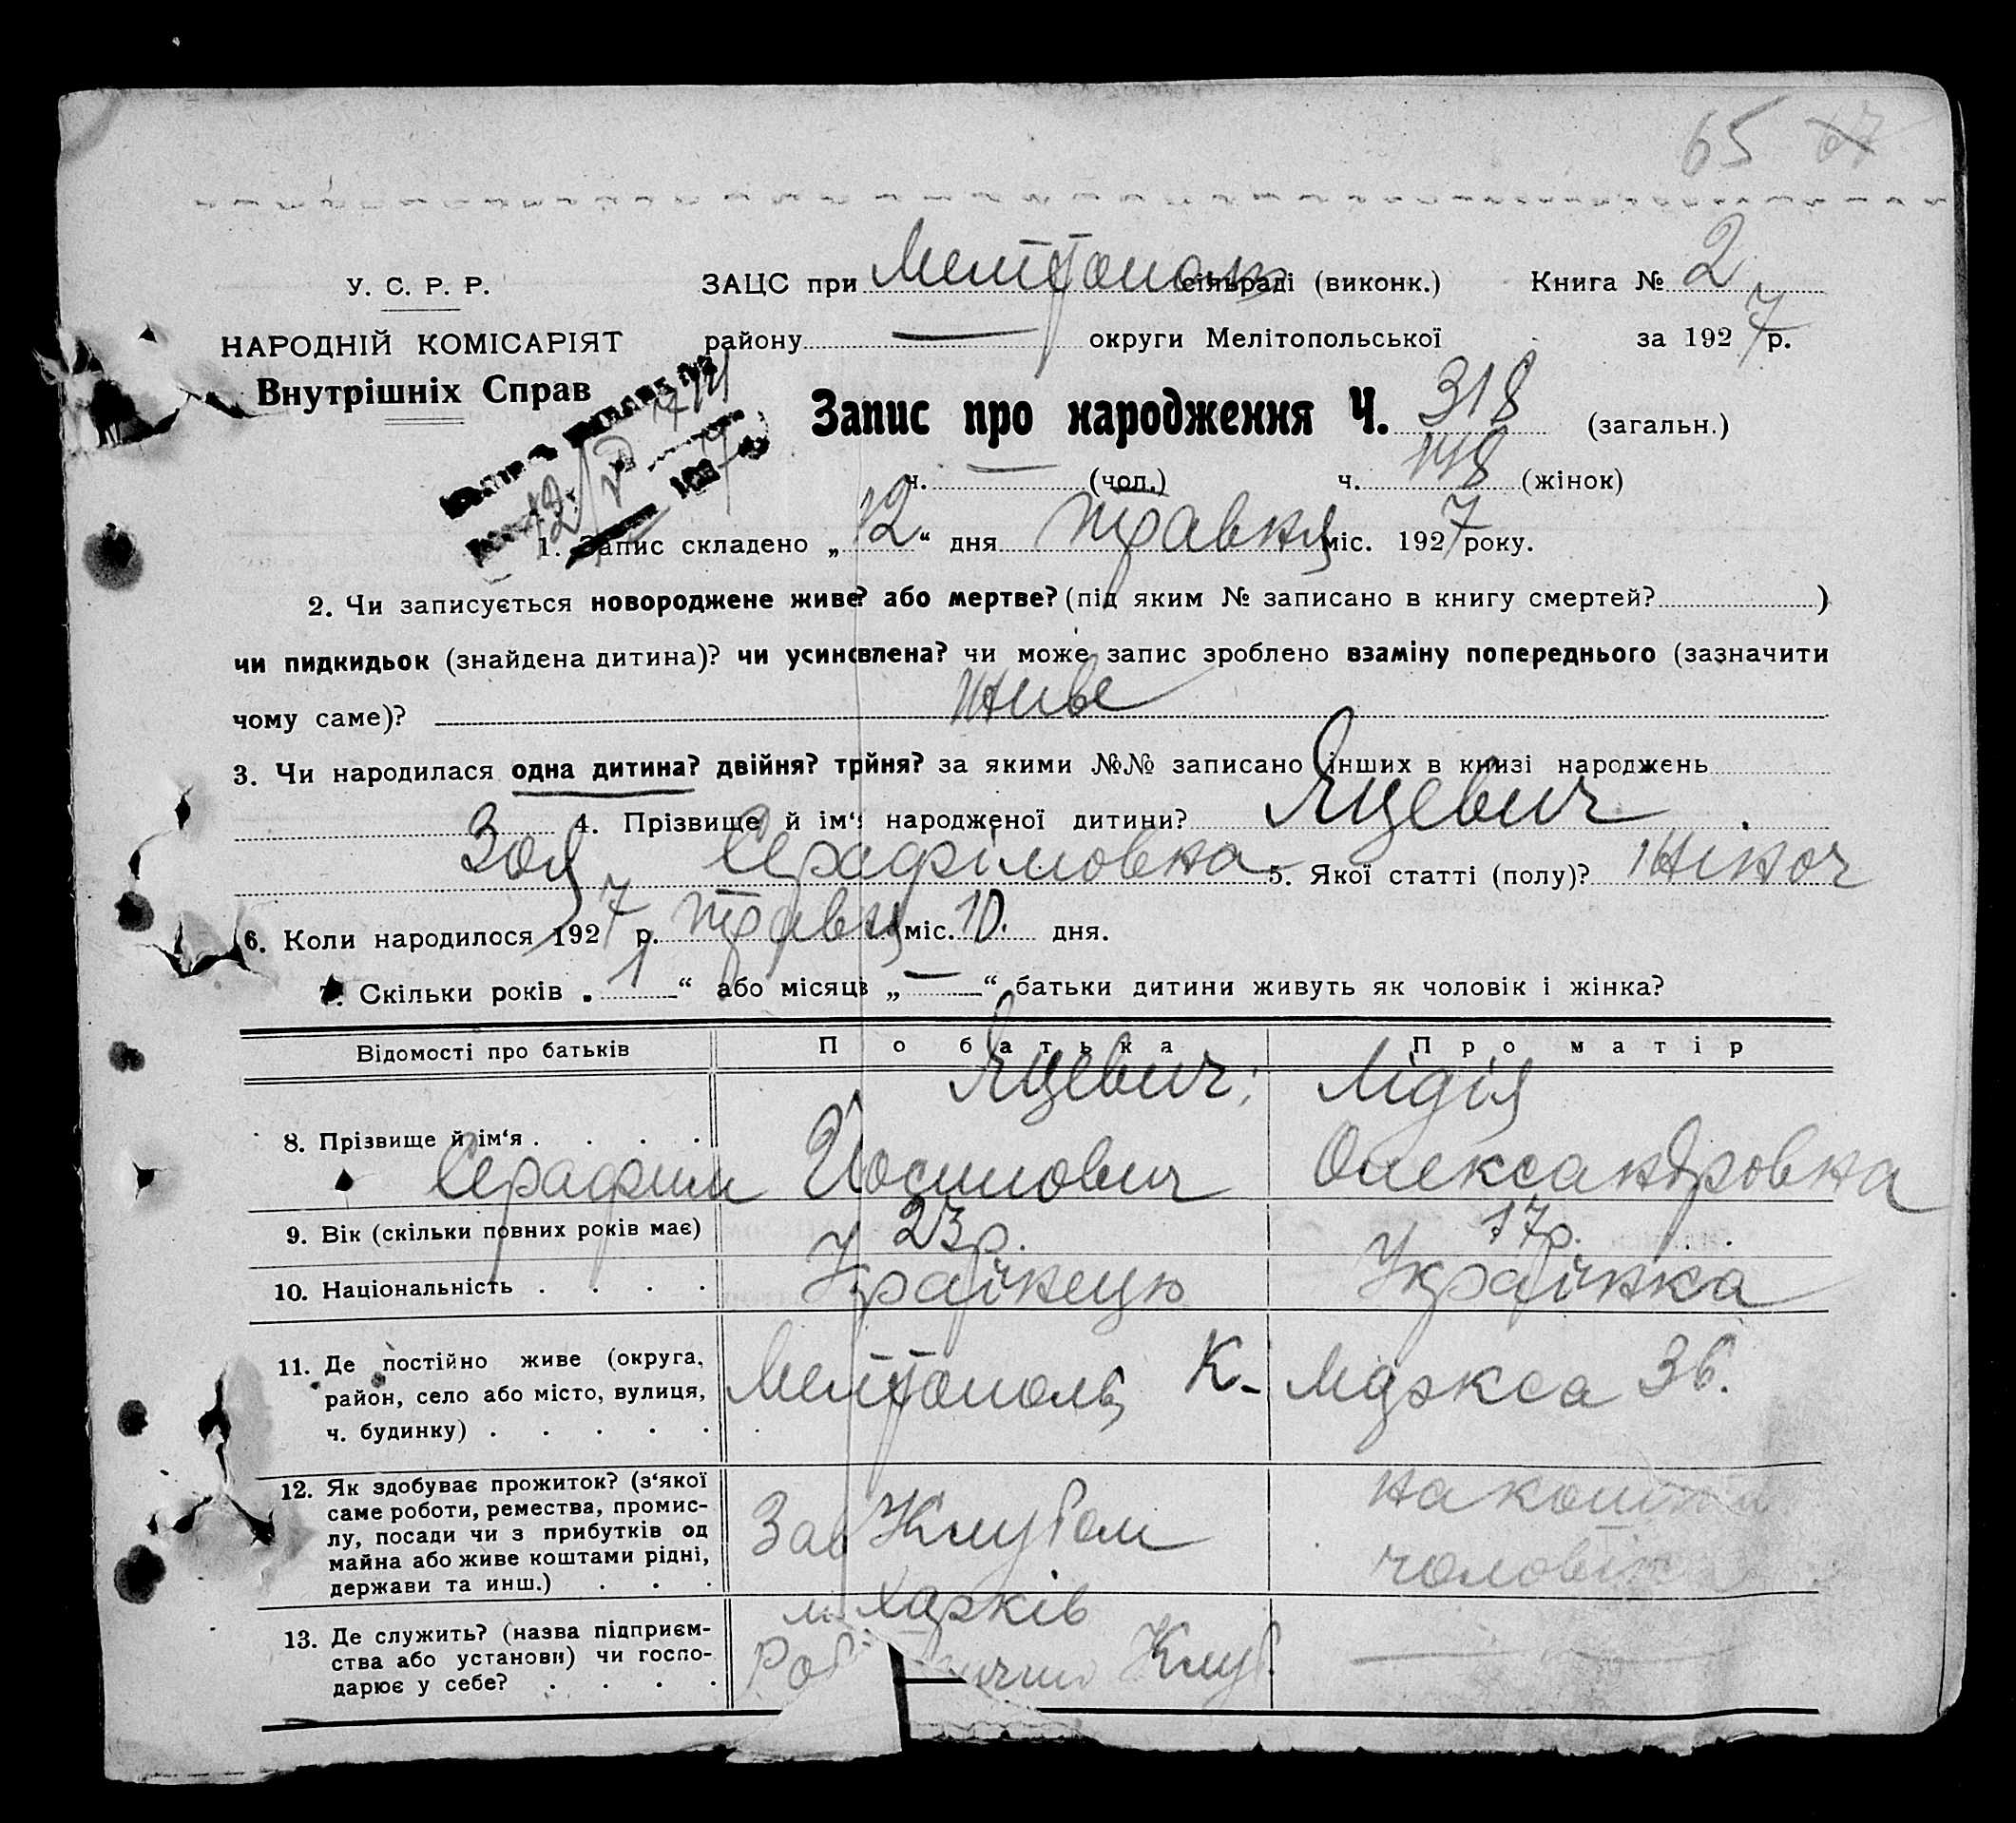 65 67
У. С. Р. Р.
ЗАЦС при Мелітополь сільраді (виконк.) Книга № 2
НАРОДНІЙ КОМІСАРІЯТ
району — округи Мелітопольської за 1927 р.
Внутрішніх Справ
Запис про народження Ч. 318 (загальн.)
ч. — (чол.) ч. 148 (жінок)
12/V 1927
1. Запис складено „12“ дня травня міс. 1927 року.
2. Чи записується новороджене живе? або мертве? (під яким № записано в книгу смертей? )
чи пидкидьок (знайдена дитина)? чи усиновлена? чи може запис зроблено взаміну попереднього (зазначити
чому саме)? живе
3. Чи народилася одна дитина? двійня? трйня? за якими №№ записано інших в книзі народжень
4. Прізвище й ім‘я народженої дитини? Яцевич
Зоя Серафімовна 5. Якої статті (полу)? жіноч
6. Коли народилося 1927 р. травня міс. 10. дня.
7. Скільки років „1“ або місяців „—“ батьки дитини живуть як чоловік і жінка?
Відомості про батьків По батька Про матір
8. Прізвище й ім‘я . . . . Яцевич, Лідія
Серафим Йосипович Олександровна
9. Вік (скільки повних років має) 23 р. 17 р.
10. Національність . . . . Українець Українка
11. Де постійно живе (округа,
район, село або місто, вулиця, Мелітополь К. Маркса 36.
ч. будинку) . . . . .
12. Як здобуває прожиток? (з‘якої на кошти
саме роботи, ремества, промис-
лу, посади чи з прибутків од Зав Клубом
майна або живе коштами рідні, чоловіка
держави та инш.) . . .
м. Харків
13. Де служить? (назва підприєм-
ства або установи) чи госпо- Клуб
дарює у себе? . . . .